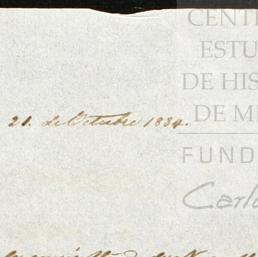 CENT
ESTU
DE HIS
DE M
FUND
Carl
21. de Octubre 1834.